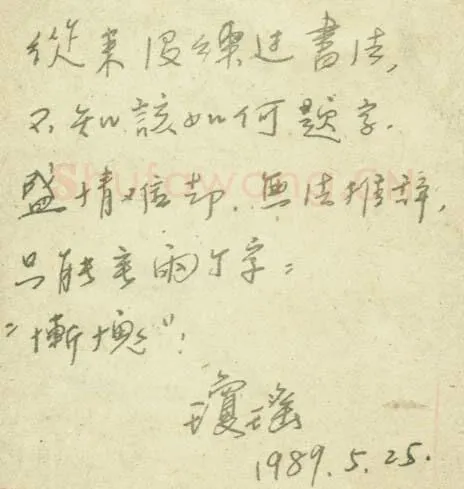 從来没練过書法,
不知該如何題字.
盛情难却. 無法推辞,
只能寫兩个字:
"慚愧"!
瓊瑤
1989.5.25.
Shufawang.CN